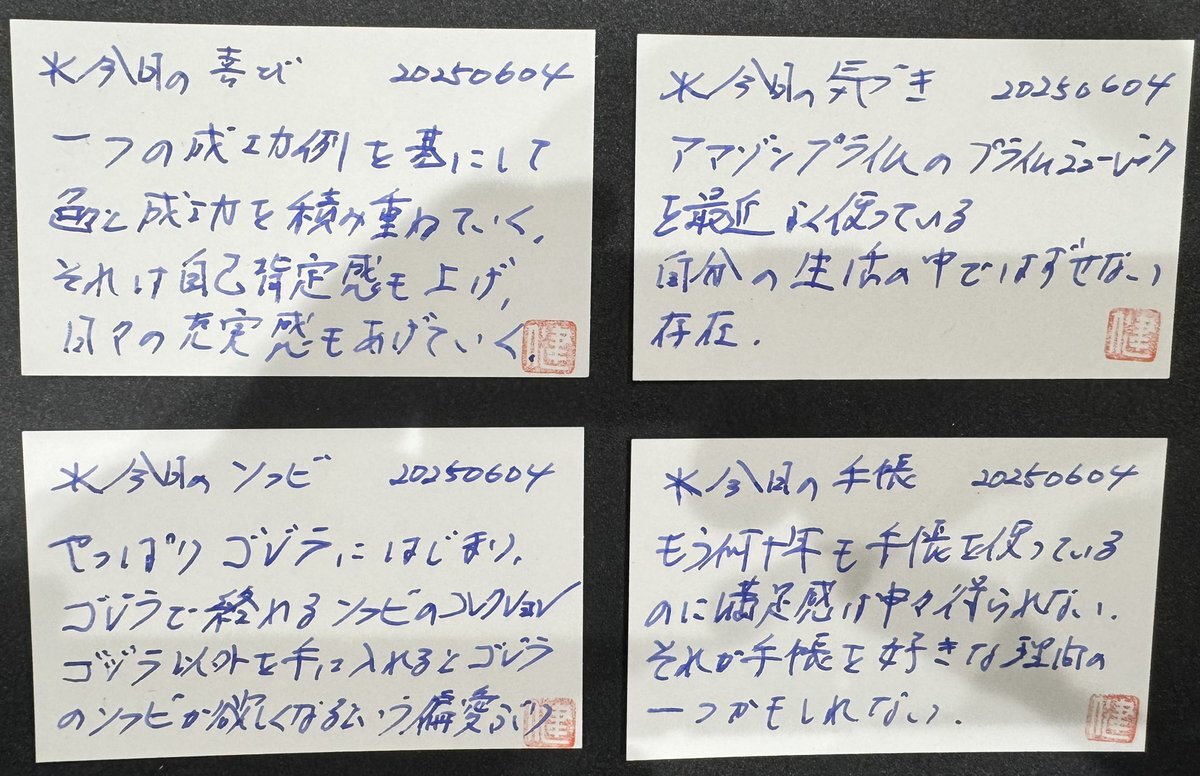 ※今日の喜び 20250604
一つの成功例を基にして
色々と成功を積み重ねていく、
それは自己肯定感も上げ、
日々の充実感もあげていく。
健
※今日の気づき 20250604
アマゾンプライムのプライムミュージック
を最近よく使っている
自分の生活の中ではずせない
存在.
健
※今日のソフビ 20250604
やっぱりゴジラにはじまり、
ゴジラで終れるソフビのコレクション
ゴジラ以外を手に入れるとゴジラ
のソフビが欲しくなるという偏愛ぶり
健
※今日の手帳 20250604
もう何十年も手帳を使っている
のに満足感は中々得られない.
それが手帳を好きな理由の
一つかもしれない.
健